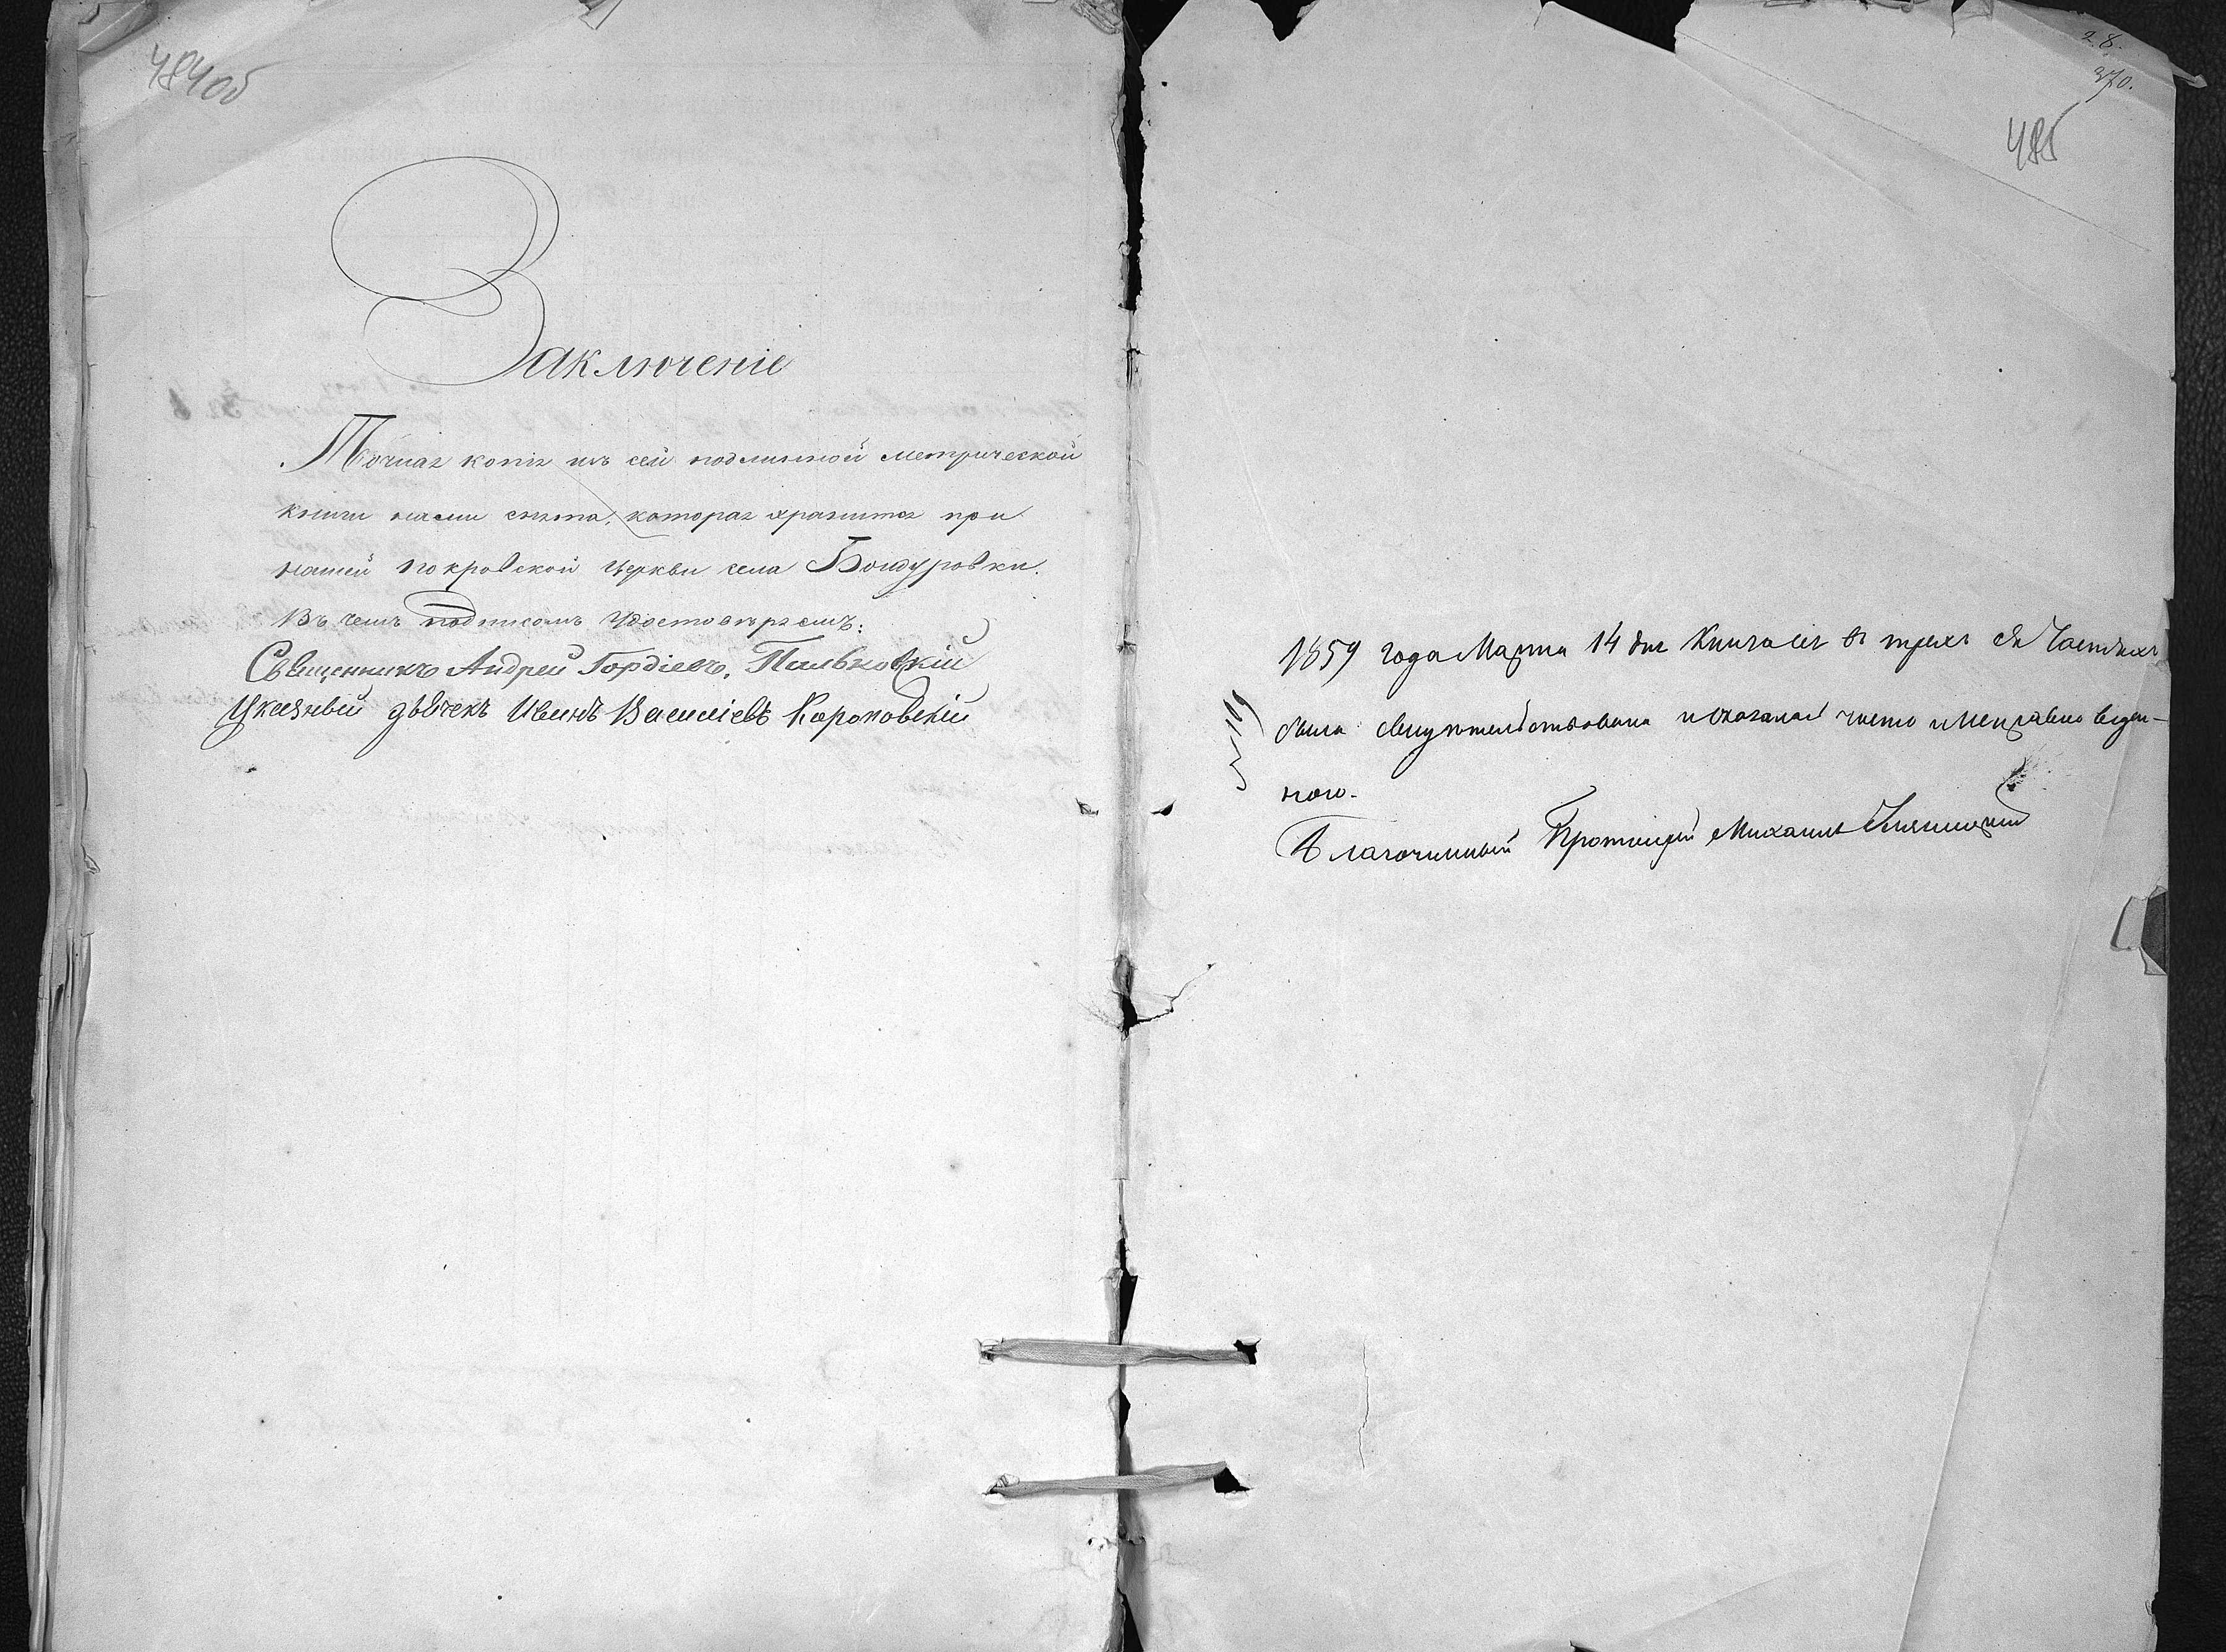 484об
Заключеніе
Точная копія изъ сей подлинной метрической
книги нами снята, которая хранится при
нашей покровской церкви села Бондуровки.
Въ чемъ подписомъ удостовѣряемъ:
Священникъ Андрей Гордіевъ, Пальковскій
Указный дьячекъ Иванъ Василіевъ Короповскій
28.
370.
485
1859 года Марта 14 дня Книга сія въ трехъ ея Частяхъ
была свидѣтельствована и оказалась чисто и исправно веден-
ною.
Благочинный Протоіерей Михаилъ